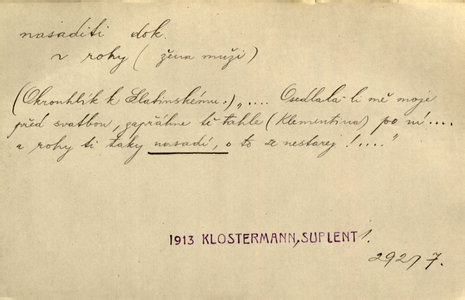 nasaditi dok.
v rohy (žena muži)
(Okrouhlík k Slatinskému.) „.... Osedlala-li mě moje
před svatbou, zapřáhne tě tahle (Klementina) po ní....
a rohy ti taky nasadí, o to se nestarej!...."
1913 KLOSTERMANN, SUPLENT 1.
292/7.